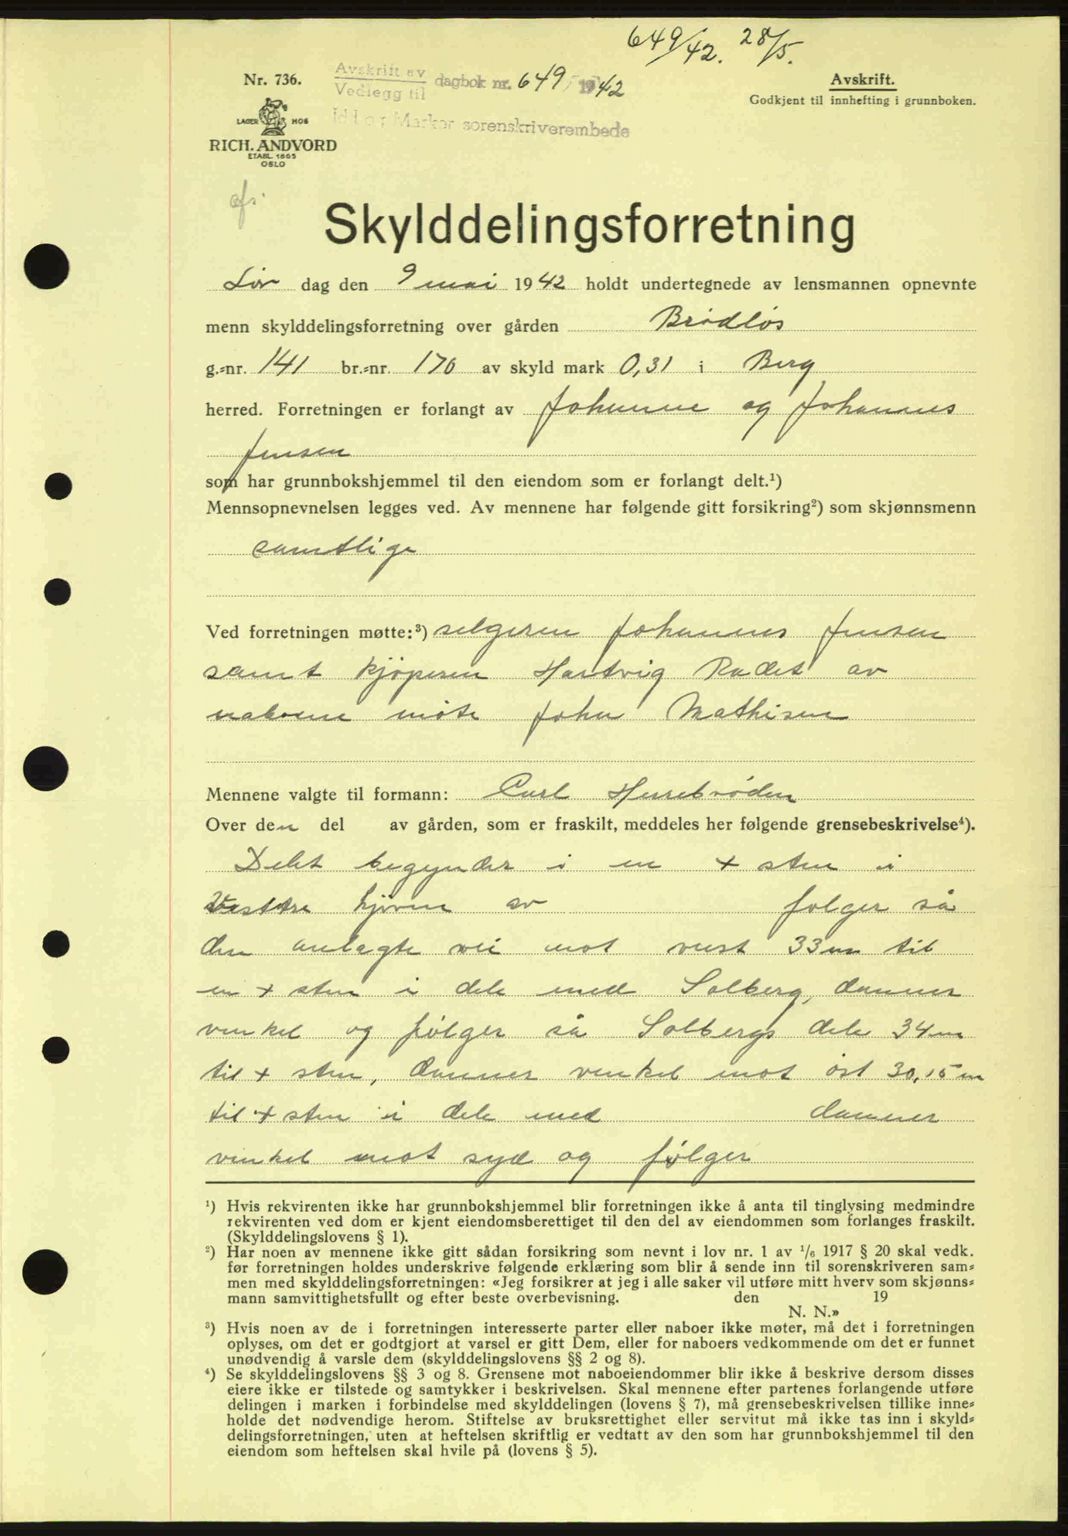 649/42. 28/5.
Nr. 736.
Avskrift av
Vedlegg til
dagbok nr. 649 1942
Idd og Marker sorenskriverembede
Avskrift.
Godkjent til innhefting i grunnboken.
LAGER HOS
RICH. ANDVORD
ETABL. 1865
OSLO
Skylddelingsforretning
Lør dag den 9 mai 1942 holdt undertegnede av lensmannen opnevnte
menn skylddelingsforretning over gården Brødløs
g.-nr. 141 br.-nr. 170 av skyld mark 0,31 i Berg
herred. Forretningen er forlangt av Johanne og Johannes
Jensen
som har grunnbokshjemmel til den eiendom som er forlangt delt.¹)
Mennsopnevnelsen legges ved. Av mennene har følgende gitt forsikring²) som skjønnsmenn
samtlige
Ved forretningen møtte:³) selgeren Johannes Jensen
samt kjøperen Hartvig Rødet av
naboene møtte John Mathisen
Mennene valgte til formann: Carl Herrebrøden
Over den del av gården, som er fraskilt, meddeles her følgende grensebeskrivelse⁴).
Delet begynder i en + sten i
vestre hjørne av følger så
den anlagte vei mot vest 33 m til
en + sten i dele med Solberg, danner
vinkel og følger så Solbergs dele 34 m
til + sten, danner vinkel mot øst 30,15 m
til + sten i dele med danner
vinkel mot syd og følger
¹) Hvis rekvirenten ikke har grunnbokshjemmel blir forretningen ikke å anta til tinglysing medmindre
rekvirenten ved dom er kjent eiendomsberettiget til den del av eiendommen som forlanges fraskilt.
(Skylddelingslovens § 1).
²) Har noen av mennene ikke gitt sådan forsikring som nevnt i lov nr. 1 av 1/6 1917 § 20 skal vedk.
før forretningen holdes underskrive følgende erklæring som blir å sende inn til sorenskriveren sam-
men med skylddelingsforretningen: «Jeg forsikrer at jeg i alle saker vil utføre mitt hverv som skjønns-
mann samvittighetsfullt og efter beste overbevisning. den 19
N. N.»
³) Hvis noen av de i forretningen interesserte parter eller naboer ikke møter, må det i forretningen
oplyses, om det er godtgjort at varsel er gitt Dem, eller for naboers vedkommende om det er funnet
unødvendig å varsle dem (skylddelingslovens §§ 2 og 8).
⁴) Se skylddelingslovens §§ 3 og 8. Grensene mot naboeiendommer blir ikke å beskrive dersom disses
eiere ikke er tilstede og samtykker i beskrivelsen. Skal mennene efter partenes forlangende utføre
delingen i marken i forbindelse med skylddelingen (lovens § 7), må grensebeskrivelsen tillike inne-
holde det nødvendige herom. Stiftelse av bruksrettighet eller servitut må ikke tas inn i skyld-
delingsforretningen, uten at heftelsen skriftlig er vedtatt av den som har grunnbokshjemmel til den
eiendom som heftelsen skal hvile på (lovens § 5).